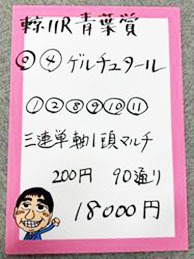 東11R 青葉賞
◎④ゲルチュタール
①②⑧⑨⑩⑪
三連単軸1頭マルチ
200円 90通り
18000円